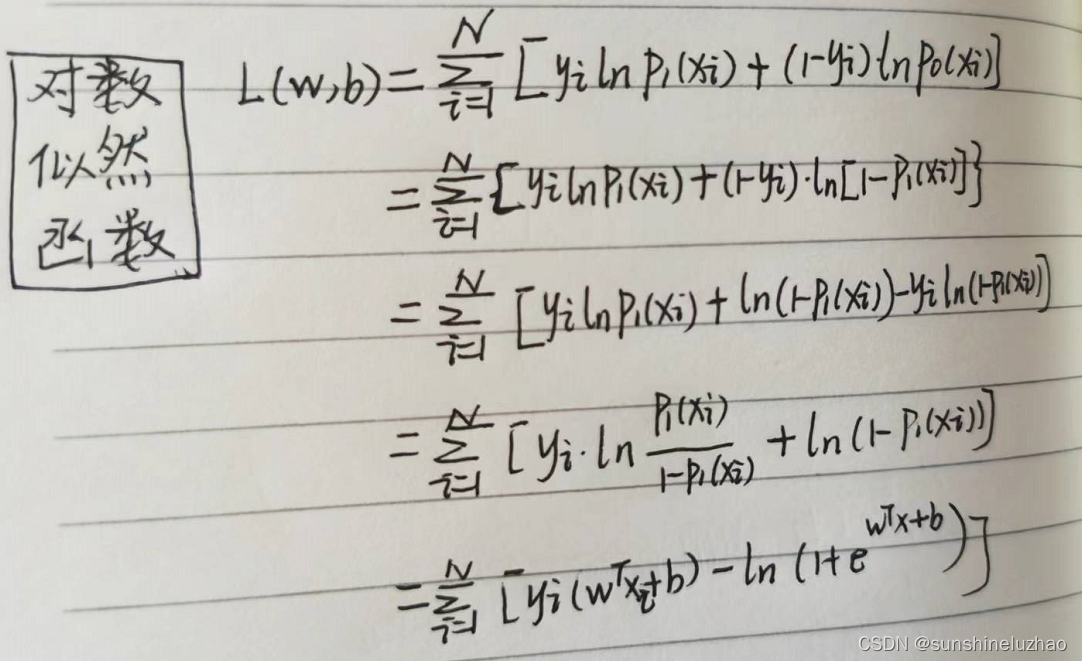 对数
似然
函数
L(w,b)=∑_{i=1}^{N}[yi ln p1(xi)+(1-yi)ln p0(xi)]
=∑_{i=1}^{N}{yi ln p1(xi)+(1-yi)·ln[1-p1(xi)]}
=∑_{i=1}^{N}[yi ln p1(xi)+ln(1-p1(xi))-yi ln(1-p1(xi))]
=∑_{i=1}^{N}[yi·ln \frac{p1(xi)}{1-p1(xi)}+ln(1-p1(xi))]
=∑_{i=1}^{N}[yi(w^T xi+b)-ln(1+e^{w^T x+b})]
CSDN @sunshineluzhao